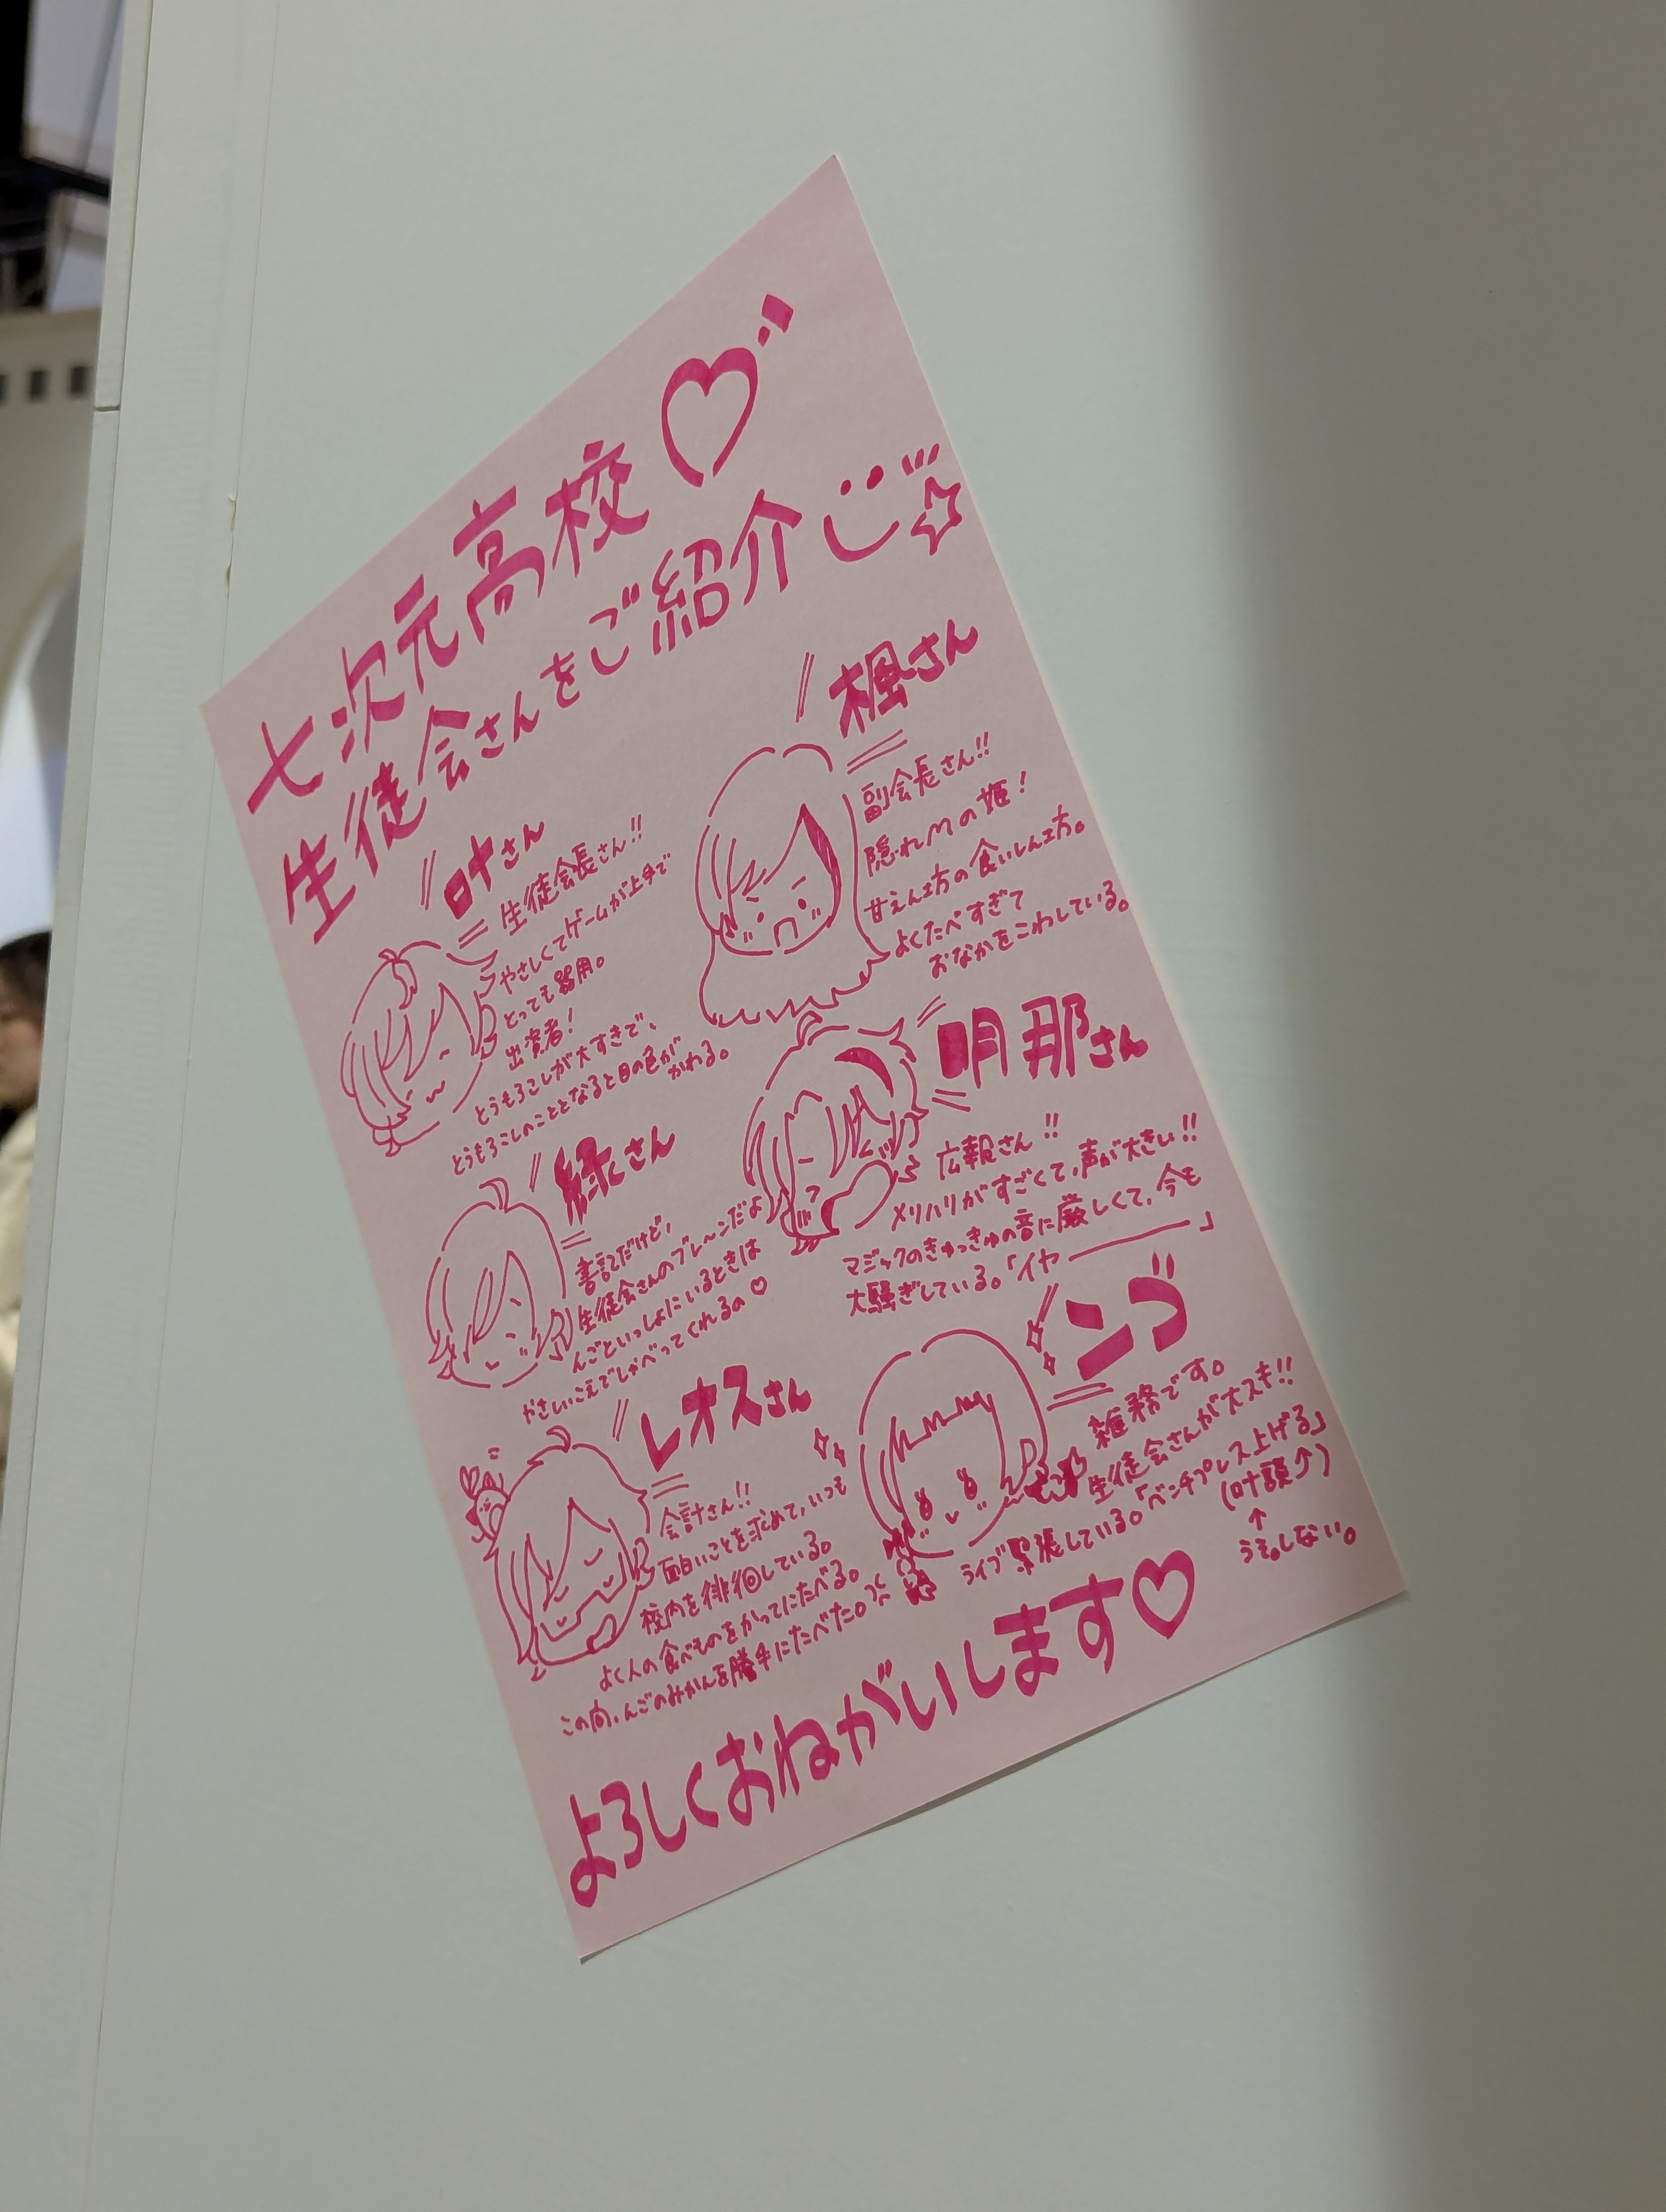 七次元高校♡
生徒会さんをご紹介
叶さん
生徒会長さん!!
やさしくてゲームが上手で
とっても器用。
出資者!
とうもろこしが大すきで、
とうもろこしのこととなると目の色が
かわる。
楓さん
副会長さん!!
隠れMの姫!
甘えん坊の食いしん坊。
よくたべすぎて
おなかをこわしている。
緑さん
書記だけど、
生徒会さんのブレーンだよ
んごといっしょにいるときは
やさしいこえでしゃべってくれるの♡
明那さん
広報さん!!
メリハリがすごくて、声が大きい!!
マジックのきゅっきゅの音に厳しくて、今も
大騒ぎしている。「イヤ――――」
レオスさん
会計さん!!
面白いことを求めて、いつも
校内を徘徊している。
よく人の食べものをかってにたべる。
この間、んごのみかんを勝手にたべた。
ンゴ
雑務です。
生徒会さんが大スキ!!
ライブ緊張している。「ベンチプレス上げる」
(叶頭↗)
↑
うそ。しない。
よろしくおねがいします♡